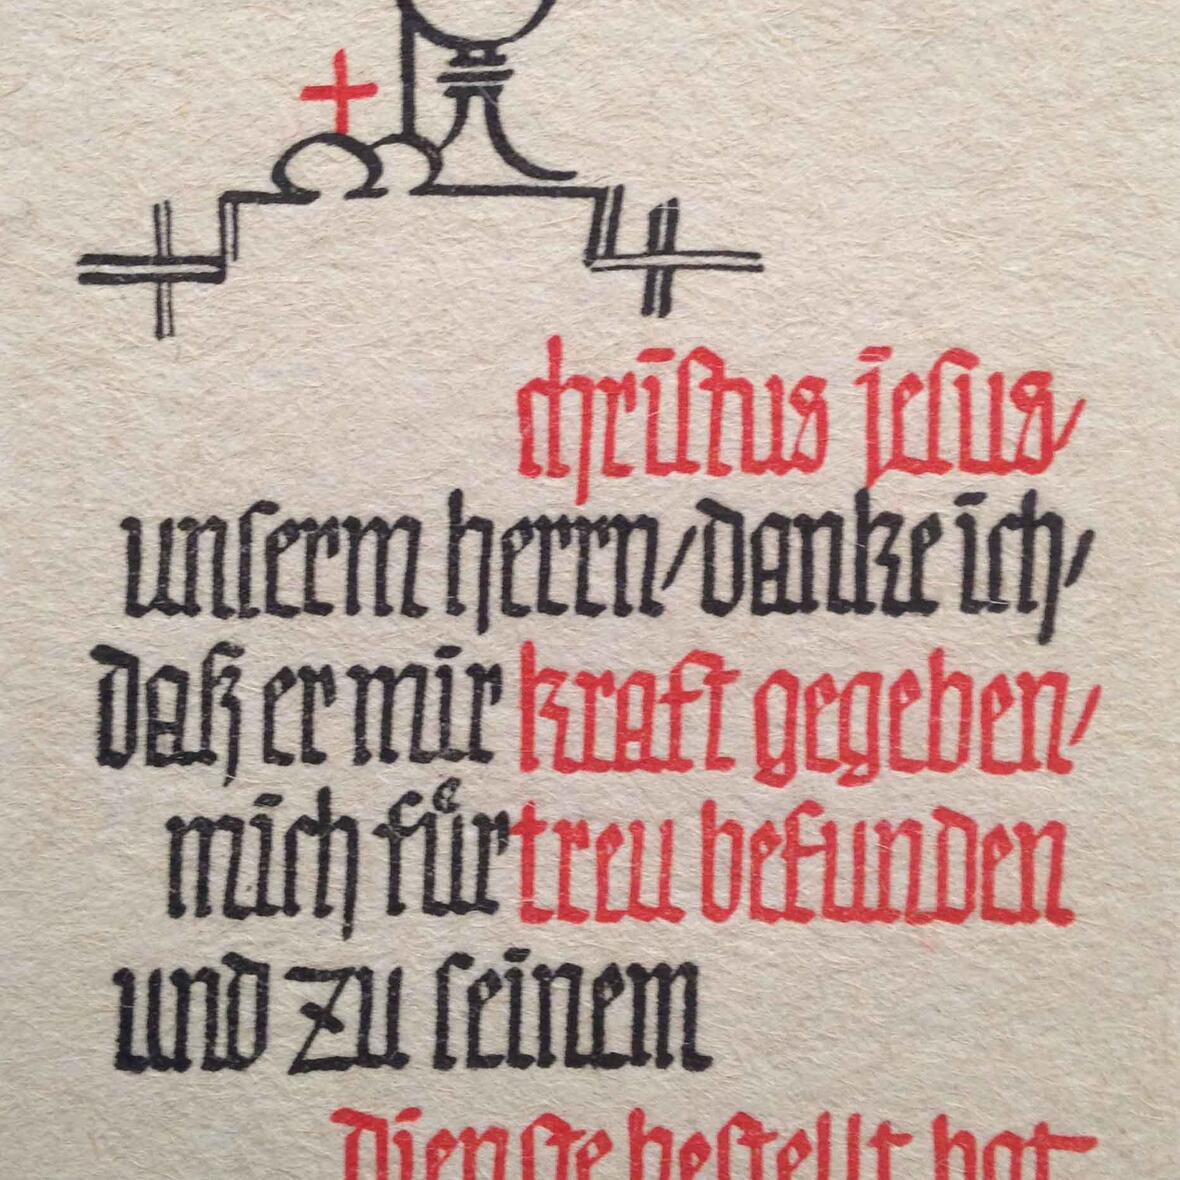 christus jesus/
unserm herrn/danke ich/
daß er mir kraft gegeben/
mich für treu befunden
und zu seinem
dienste bestellt hat